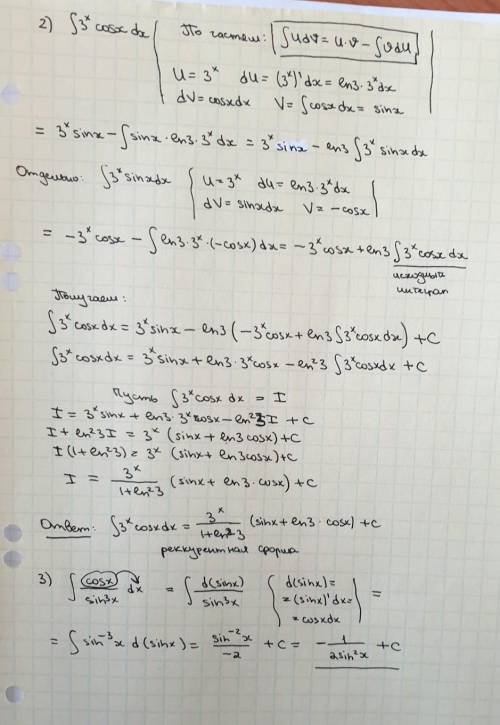 2) ∫3ˣ cosx dx | По частям: ∫Udϑ = U·ϑ − ∫ϑdU
U = 3ˣ dU = (3ˣ)'dx = ln3·3ˣdx
dV = cosxdx V = ∫cosxdx = sinx
= 3ˣ sinx − ∫sinx·ln3·3ˣdx = 3ˣ sinx − ln3 ∫3ˣ sinxdx
Отдельно: ∫3ˣsinxdx { U = 3ˣ dU = ln3·3ˣdx
dV = sinxdx V = −cosx
= −3ˣcosx − ∫ln3·3ˣ·(−cosx)dx = −3ˣcosx + ln3 ∫3ˣcosx dx
исходный
интеграл
Получаем:
∫3ˣcosxdx = 3ˣsinx − ln3(−3ˣcosx + ln3∫3ˣcosxdx) + C
∫3ˣcosxdx = 3ˣsinx + ln3·3ˣcosx − ln²3 ∫3ˣcosxdx + C
Пусть ∫3ˣcosx dx = I
I = 3ˣsinx + ln3·3ˣcosx − ln²3I + C
I + ln²3I = 3ˣ (sinx + ln3cosx) + C
I(1 + ln²3) = 3ˣ (sinx + ln3cosx) + C
I = 3ˣ/(1+ln²3) (sinx + ln3·cosx) + C
Ответ: ∫3ˣcosxdx = 3ˣ/(1+ln²3) (sinx + ln3·cosx) + C
реккурентная форма
3) ∫ cosx/sin³x dx = ∫ d(sinx)/sin³x { d(sinx) =
= (sinx)'dx =
= cosxdx } =
= ∫sin⁻³x d(sinx) = sin⁻²x/−2 + C = −1/2sin²x + C